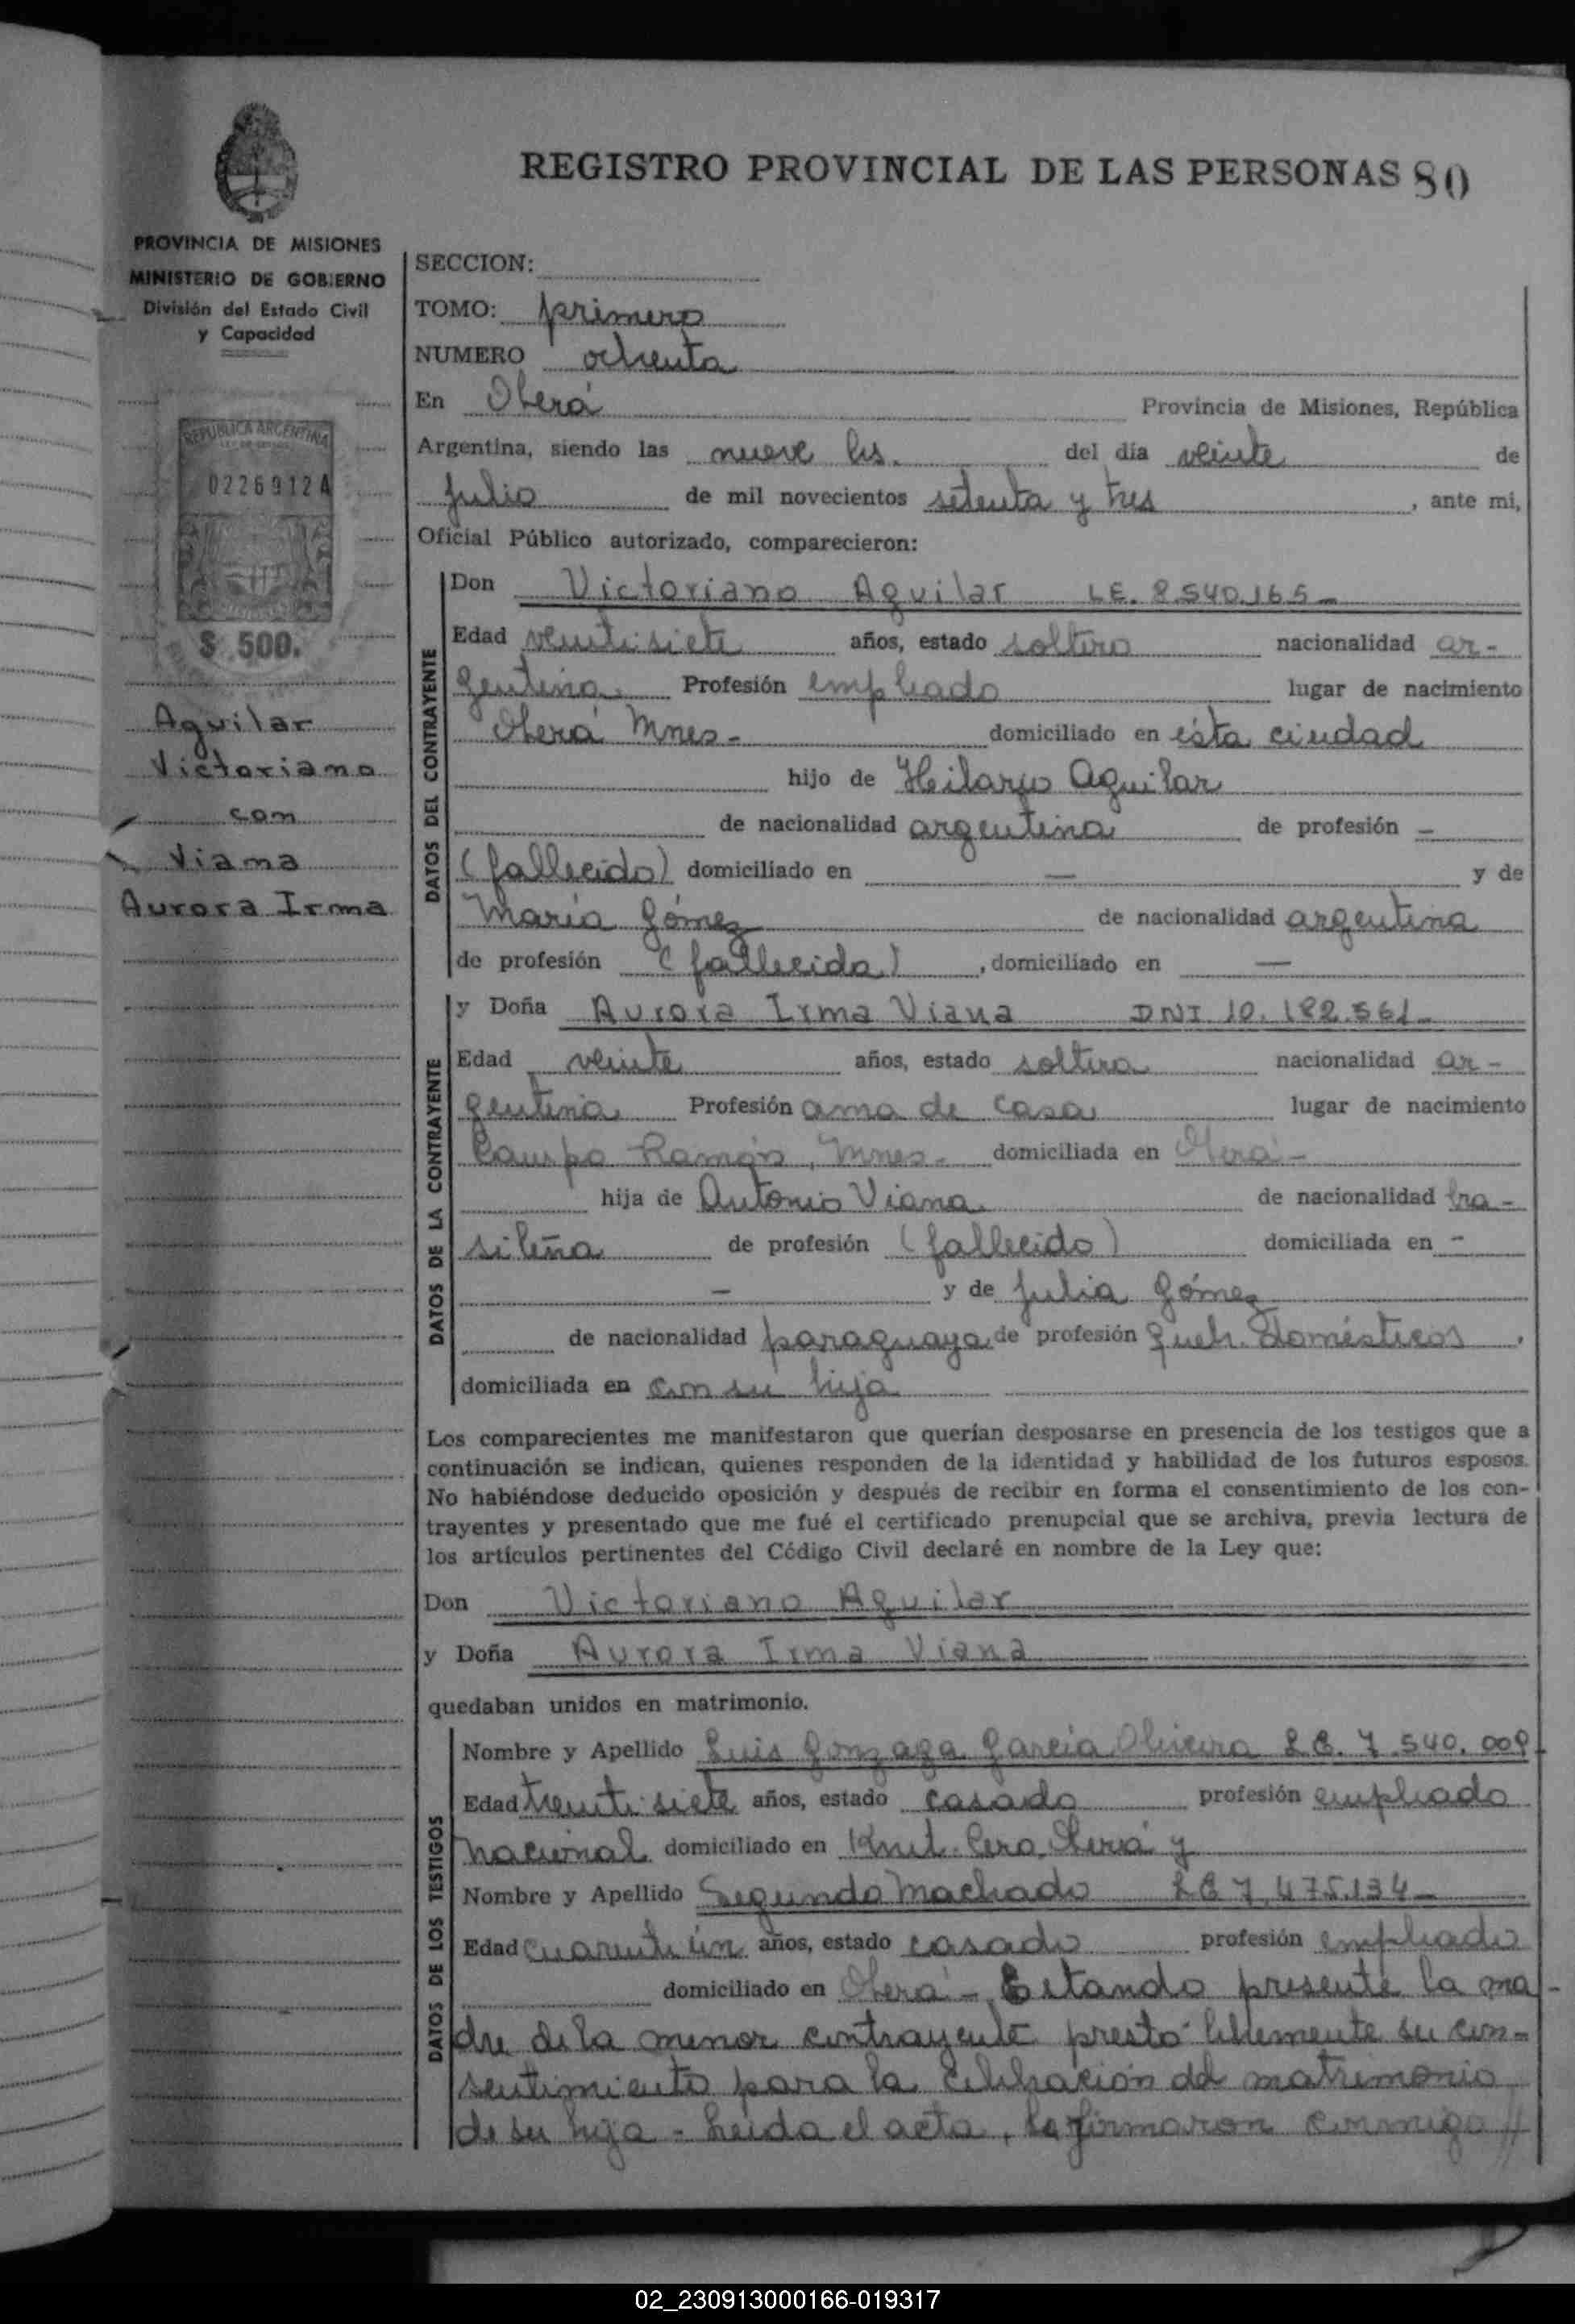 REGISTRO PROVINCIAL DE LAS PERSONAS 80
PROVINCIA DE MISIONES
MINISTERIO DE GOBIERNO
División del Estado Civil
y Capacidad
REPUBLICA ARGENTINA
02269124
$ 500.
Aguilar
Victoriano
con
Viana
Aurora Irma
SECCION:
TOMO: primero
NUMERO ochenta
En Oberá Provincia de Misiones, República
Argentina, siendo las nueve hs. del día veinte de
julio de mil novecientos setenta y tres, ante mi,
Oficial Público autorizado, comparecieron:
DATOS DEL CONTRAYENTE
Don Victoriano Aguilar LE. 8.540.165-
Edad veintisiete años, estado soltero nacionalidad ar-
gentina Profesión empleado lugar de nacimiento
Oberá Mnes- domiciliado en ésta ciudad
hijo de Hilario Aguilar
de nacionalidad argentina de profesión -
(fallecido) domiciliado en — y de
María Gómez de nacionalidad argentina
de profesión (fallecida), domiciliado en —
DATOS DE LA CONTRAYENTE
y Doña Aurora Irma Viana DNI 10.182.561-
Edad veinte años, estado soltera nacionalidad ar-
gentina Profesión ama de casa lugar de nacimiento
Campo Ramón, Mnes- domiciliada en Oberá-
hija de Antonio Viana de nacionalidad bra-
sileña de profesión (fallecido) domiciliada en -
- y de Julia Gómez
de nacionalidad paraguaya de profesión queh. domésticos,
domiciliada en con su hija
Los comparecientes me manifestaron que querían desposarse en presencia de los testigos que a
continuación se indican, quienes responden de la identidad y habilidad de los futuros esposos.
No habiéndose deducido oposición y después de recibir en forma el consentimiento de los con-
trayentes y presentado que me fué el certificado prenupcial que se archiva, previa lectura de
los artículos pertinentes del Código Civil declaré en nombre de la Ley que:
Don Victoriano Aguilar
y Doña Aurora Irma Viana
quedaban unidos en matrimonio.
DATOS DE LOS TESTIGOS
Nombre y Apellido Luis Gonzaga García Oliveira L E. 7.540.009
Edad treinti siete años, estado casado profesión empleado
nacional domiciliado en Kmt. Cero, Oberá y
Nombre y Apellido Segundo Machado L E 7.475.134-
Edad cuarenti ún años, estado casado profesión empleado
domiciliado en Oberá - Estando presente la ma-
dre de la menor contrayente prestó libremente su con-
sentimiento para la celebración del matrimonio
de su hija - Leida el acta, la firmaron conmigo //
02_230913000166-019317